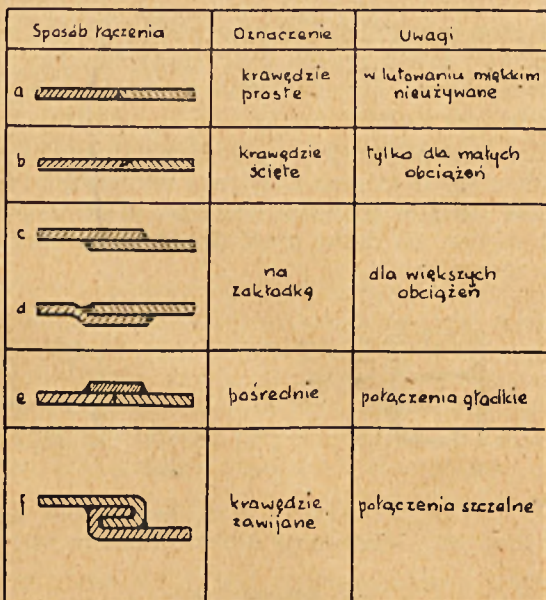 Sposób łączenia Oznaczenie Uwagi
a krawędzie proste w lutowaniu miękkim nieużywane
b krawędzie ścięte tylko dla małych obciążeń
c
d na zakładkę dla większych obciążeń
e pośrednie połączenia gładkie
f krawędzie zawijane połączenia szczelne